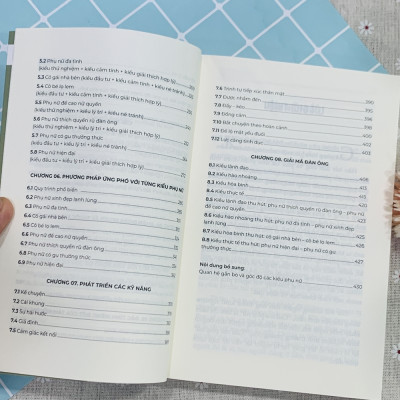 5.2 Phụ nữ đa tình
(kiểu thử nghiệm + kiểu cảm tính + kiểu giải thích hợp lý)
5.3 Cô gái nhà bên (kiểu đầu tư + kiểu cảm tính + kiểu né tránh)
5.4 Cô bé lọ lem
(kiểu đầu tư + kiểu cảm tính + kiểu giải thích hợp lý)
5.5 Phụ nữ đề cao nữ quyền
(kiểu thử nghiệm + kiểu lý trí + kiểu giải thích hợp lý)
5.6 Phụ nữ thích quyến rũ đàn ông
5.7 Phụ nữ có gu thưởng thức
5.8 Phụ nữ hiện đại
(kiểu đầu tư + kiểu lý trí + kiểu né tránh)
CHƯƠNG 06. PHƯƠNG PHÁP ỨNG PHÓ VỚI TỪNG KIỂU PHỤ NỮ
6.1 Quy trình phổ biến
6.2 Phụ nữ xinh đẹp lạnh lùng
6.3 Phụ nữ đa tình
6.4 Cô gái nhà bên
6.5 Cô bé lọ lem
6.6 Phụ nữ đề cao nữ quyền
6.7 Phụ nữ thích quyến rũ đàn ông
6.8 Phụ nữ có gu thưởng thức
6.9 Phụ nữ hiện đại
CHƯƠNG 07. PHÁT TRIỂN CÁC KỸ NĂNG
7.1 Kể chuyện
7.2 Cái khung
7.3 Sự hài hước
7.4 Giả định
7.5 Cảm giác kết nối
7.6 tiếp xúc thân mật 390
7.7
7.8 Đẩy - kéo
7.9 Đồng cảm
7.10 chuyện theo hoàn cảnh
7.11 Để lộ mặt yếu đuối 402
7.12 403
CHƯƠNG 08. GIẢI MÃ ĐÀN ÔNG
8.1 Kiểu lãnh đạo 408
8.2 Kiểu hào nhoáng 411
8.3 Kiểu hòa bình 413
8.4 Kiểu thực tế 416
8.5 Kiểu lãnh đạo thu hút phụ nữ thích quyến rũ đàn ông - phụ nữ
đề cao nữ quyền 420
8.6 Kiểu hào nhoáng thu hút phụ nữ đa tình - phụ nữ xinh đẹp
lạnh lùng 423
8.7 Kiểu hòa bình thu hút: cô gái nhà bên - cô bé lọ lem 425
8.8 Kiểu thực tế thu hút phụ nữ hiện đại - phụ nữ có gu
thưởng thức 427
Nội dung bổ sung
Quan hệ gắn bó và góc độ các kiểu phụ nữ 430